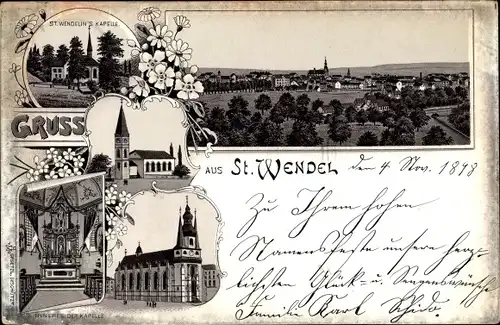 ST. WENDELIN'S KAPELLE
GRUSS
AUS St. WENDEL
den 4 Nov. 1898
Zu Ihrem hohen
Namensfeste unsere herz-
lichsten Glück- u. Segenswünsche
Familie Karl
INNERES DER KAPELLE